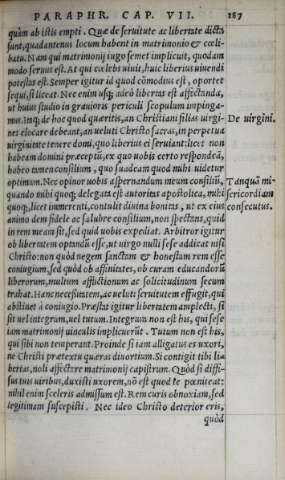 PARAPHR. CAP. VII. 187
quàm ab istis empti. Quæ de seruitute ac libertate dicta
sunt, quadantenus locum habent in matrimonio & cœli-
batu. Nam qui matrimonij iugo semet implicuit, quodam
modo seruus est. At qui cælebs uiuit, huic liberius uiuendi
potestas est. Semper igitur id quod cõmodius est, oportet
sequi, si liceat. Nec enim usq; adeò libertas est affectanda,
ut huius studio in grauioris periculi scopulum impinga-
mus. Inq; de hoc quod quæritis, an Christiani filias uirgi- De uirgini.
nes elocare debeant, an ueluti Christo sacras, in perpetua
uirginitate tenere domi, quo liberius ei seruiant: licet non
habeam domini præceptũ, ex quo uobis certo respondeã,
habeo tamen consilium, quo suadeam quod mihi uidetur
optimum. Nec opinor uobis aspernandum meum consiliũ, Tanquã mi-
quando mihi quoq; delegata est autoritas apostolica, mihi sericordiam
quoq;, licet immerenti, contulit diuina bonitas, ut ex eius consecutus.
animo dem fidele ac salubre consilium, non spectans, quid
in rem meam sit, sed quid uobis expediat. Arbitror igitur
ob libertatem optandũ esse, ut uirgo nulli sese addicat nisi
Christo: non quòd negem sanctam & honestam rem esse
coniugium, sed quòd ob affinitates, ob curam educandorũ
liberorum, multum afflictionum ac solicitudinum secum
trahat. Hanc necessitatem, ac ueluti seruitutem effugit, qui
abstinet à coniugio. Præstat igitur libertatem amplecti, si
sit uel integram, uel tutum. Integrum non est his, qui sese
iam matrimonij uinculis implicuerũt. Tutum non est his,
qui sibi non temperant. Proinde si iam alligatus es uxori,
ne Christi prætextu quæras diuortium. Si contigit tibi li-
bertas, noli affectare matrimonij capistrum. Quòd si diffi-
sus tuis uiribus, duxisti uxorem, nõ est quòd te pœniteat:
nihil enim sceleris admissum est. Rem curis obnoxiam, sed
legitimam suscepisti. Nec ideo Christo deterior eris,
quòd